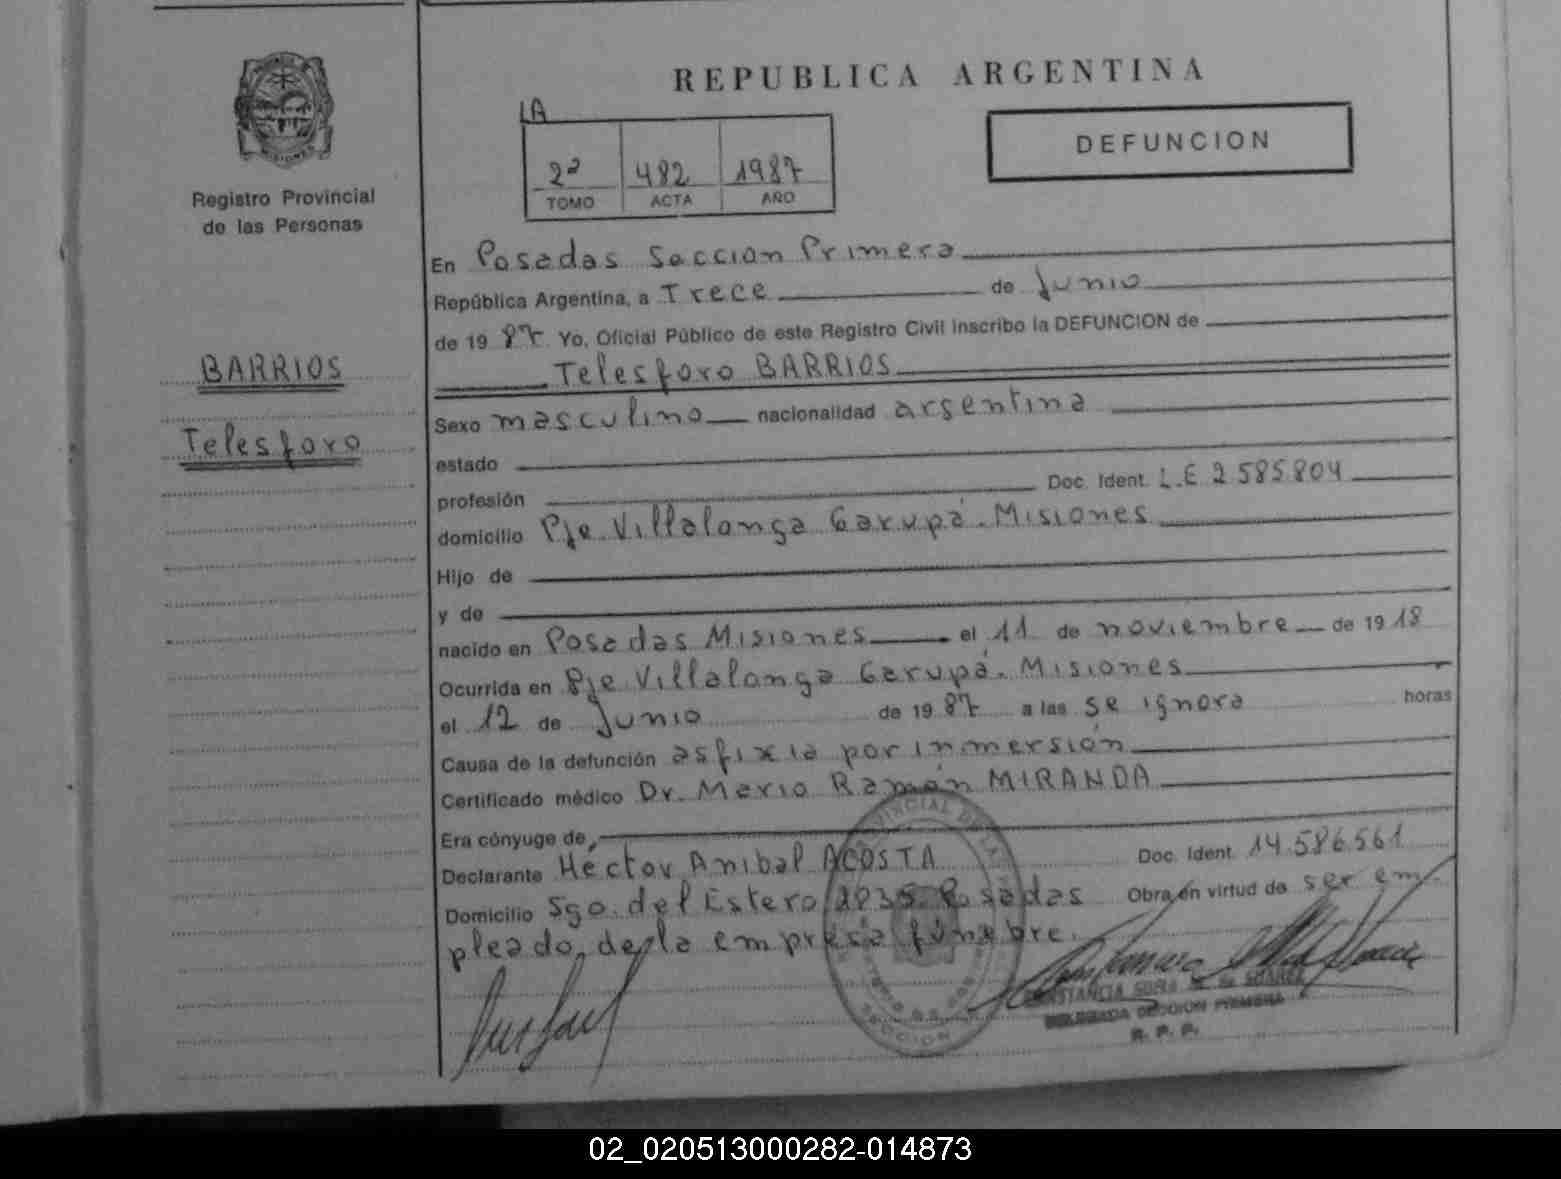 REPUBLICA ARGENTINA
1A
2ª 482 1987
TOMO ACTA AÑO
DEFUNCION
MISIONES
Registro Provincial
de las Personas
BARRIOS
Telesforo
En Posadas Seccion Primera
República Argentina, a Trece de Junio
de 1987 Yo, Oficial Público de este Registro Civil inscribo la DEFUNCION de
Telesforo BARRIOS
Sexo masculino nacionalidad argentina
estado
profesión Doc. Ident. L.E 2.585.804
domicilio Pje. Villalonga Garupá. Misiones
Hijo de
y de
nacido en Posadas Misiones el 11 de noviembre de 1918
Ocurrida en Pje. Villalonga Garupá. Misiones
el 12 de Junio de 1987 a las se ignora horas
Causa de la defunción asfixia por inmersión
Certificado médico Dr. Mario Ramón MIRANDA
Era cónyuge de
Declarante Hector Anibal ACOSTA Doc. Ident. 14.586.561
Domicilio Sgo. del Estero Posadas Obra en virtud de ser em-
pleado de la empresa fúnebre.
CONSTANCIA SUAREZ
DELEGADA SECCION PRIMERA
R. P. P.
02_020513000282-014873